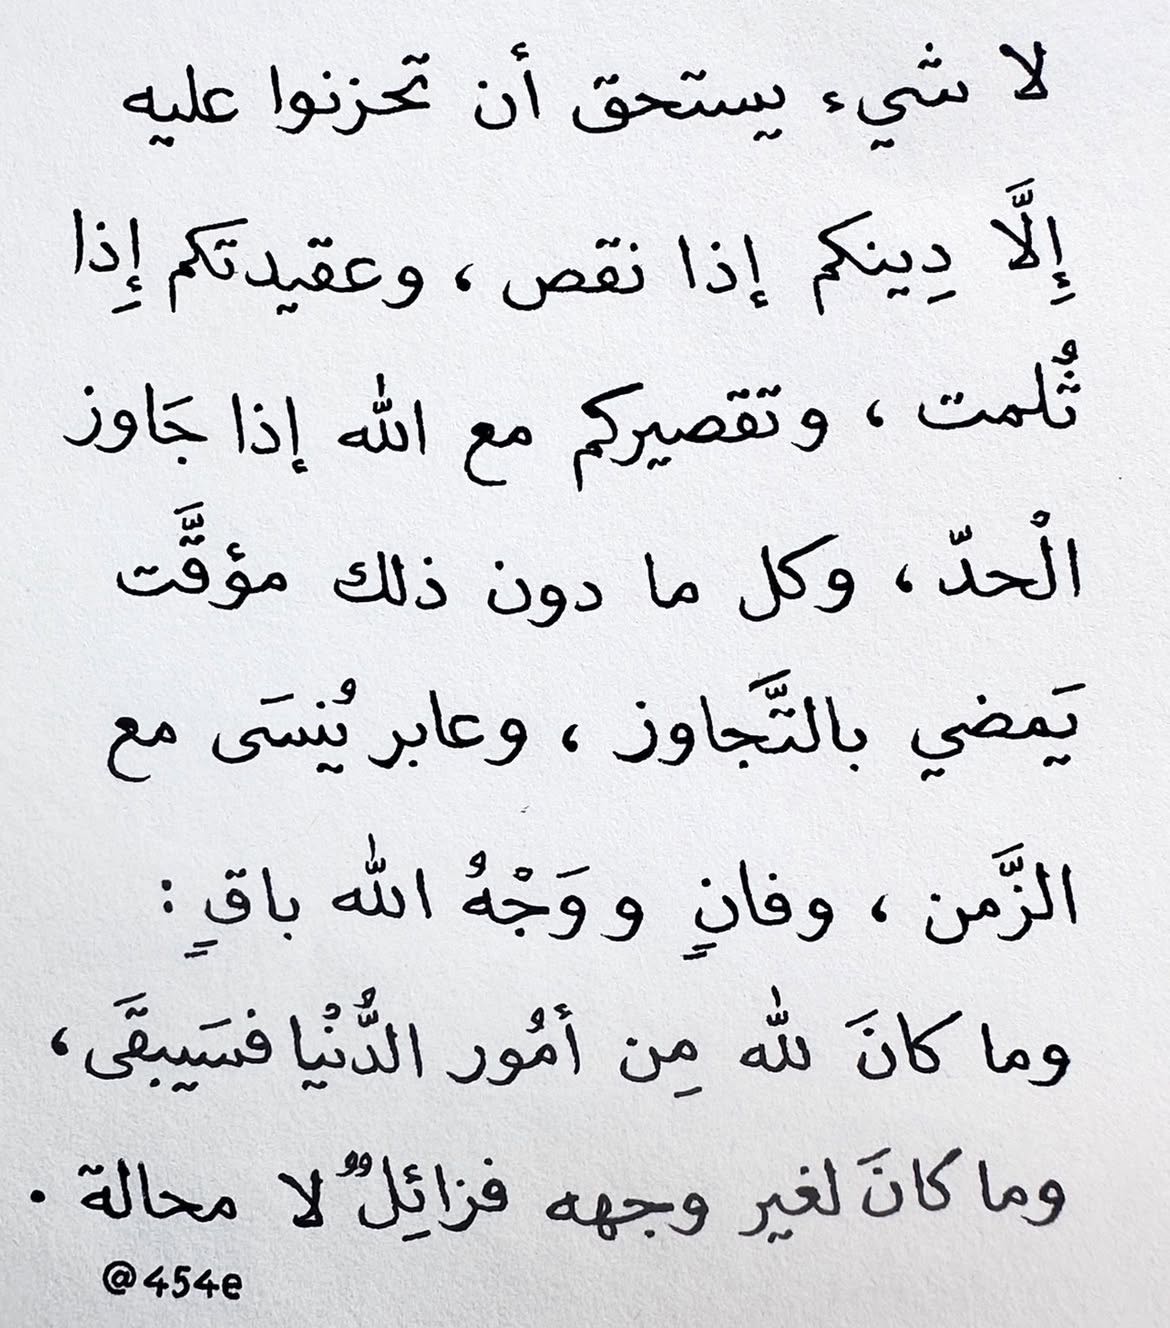 لا شيء يستحق أن تحزنوا عليه
إِلَّا دِينكم إذا نقص ، وعقيدتكم إِذا
ثُلمت ، وتقصيركم مع الله إذا جَاوز
الْحدّ ، وكل ما دون ذلك مؤقَّت
يَمضي بالتَّجاوز ، وعابر يُنسَى مع
الزَّمن ، وفانٍ و وَجْهُ الله باقٍ :
وما كانَ لله مِن أمُور الدُّنْيا فسَيبقَى ،
وما كانَ لغير وجهه فزائِلٌ لا محالة .
@454e